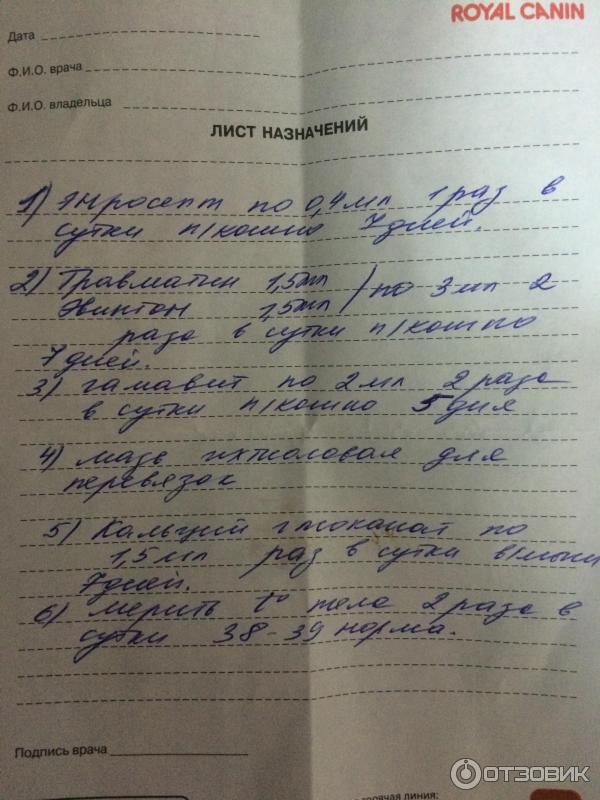 ROYAL CANIN
Дата
Ф.И.О. врача
Ф.И.О. владельца
ЛИСТ НАЗНАЧЕНИЙ
1) по 0,4 мл 1 раз в
сутки п/кожно 7 дней.
2) Травматин 1,5мл / по 3 мл 2
Эвинтон 1,5мл
раза в сутки п/кожно
7 дней.
3) гамавит по 2 мл 2 раза
в сутки п/кожно 5 дня
4) мазь ихтиоловая для
перевязок
5) Кальций глюконат по
1,5 мл раз в сутки в/мыш
7 дней.
6) мерить t° тела 2 раза в
сутки 38-39 норма.
Подпись врача
горячая линия:
ОТЗОВИК